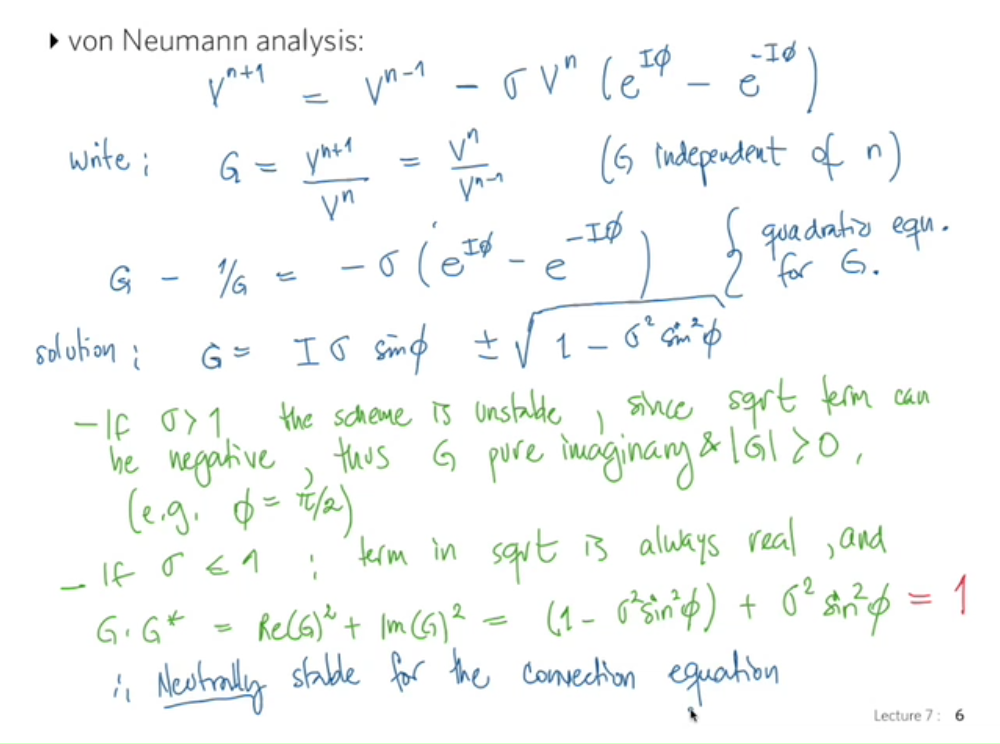 ▸ von Neumann analysis:
V^{n+1} = V^{n-1} - σ V^n (e^{Iϕ} - e^{-Iϕ})
write: G = V^{n+1}/V^n = V^n/V^{n-1} (G independent of n)
G - 1/G = -σ (e^{Iϕ} - e^{-Iϕ}) } quadratic equn. for G.
solution: G = I σ sinϕ ± √(1 - σ² sin²ϕ)
- If σ>1 the scheme is unstable, since sqrt term can
be negative, thus G pure imaginary & |G| > 0,
(e.g. ϕ = π/2)
- If σ ≤ 1 : term in sqrt is always real, and
G·G* = Re(G)² + Im(G)² = (1 - σ²sin²ϕ) + σ² sin²ϕ = 1
∴ Neutrally stable for the convection equation
Lecture 7 : 6